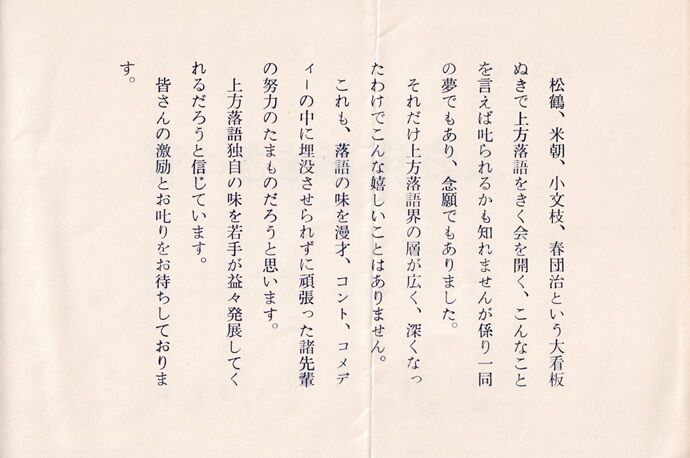 松鶴、米朝、小文枝、春団治という大看板
ぬきで上方落語をきく会を開く、こんなこと
を言えば叱られるかも知れませんが係り一同
の夢でもあり、念願でもありました。
それだけ上方落語界の層が広く、深くなっ
たわけでこんな嬉しいことはありません。
これも、落語の味を漫才、コント、コメデ
ィーの中に埋没させられずに頑張った諸先輩
の努力のたまものだろうと思います。
上方落語独自の味を若手が益々発展してく
れるだろうと信じています。
皆さんの激励とお叱りをお待ちしておりま
す。